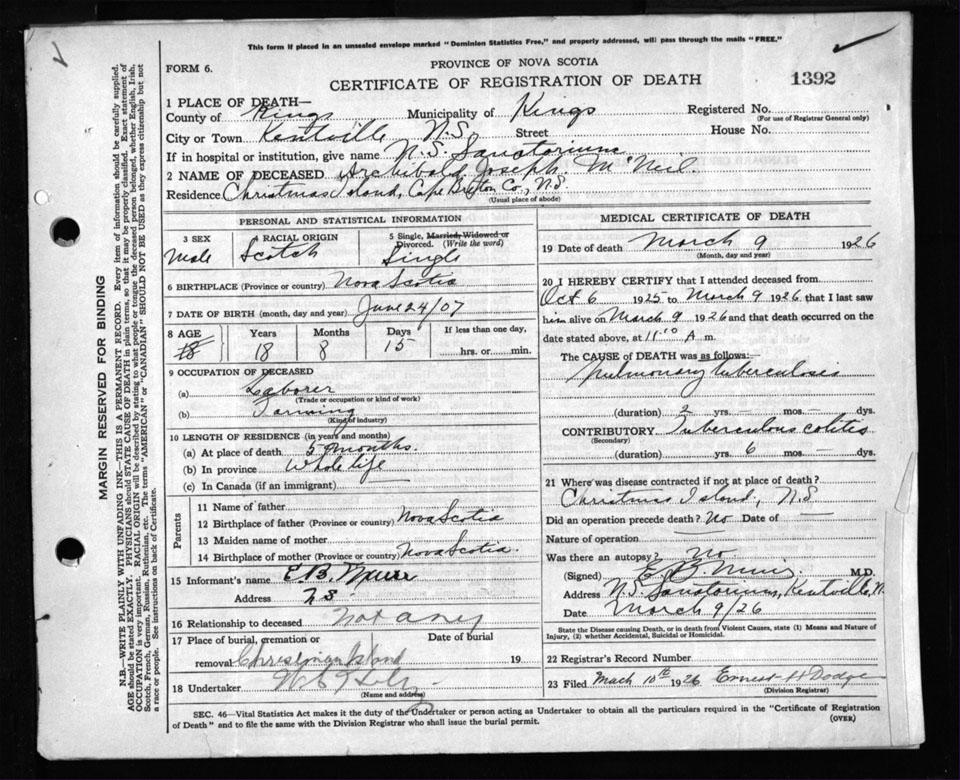 This form if placed in an unsealed envelope marked "Dominion Statistics Free," and properly addressed, will pass through the mails "FREE."
FORM 6.
PROVINCE OF NOVA SCOTIA
CERTIFICATE OF REGISTRATION OF DEATH
1392
1 PLACE OF DEATH—
County of Kings Municipality of Kings Registered No.
(For use of Registrar General only)
City or Town Kentville N.S. Street House No.
If in hospital or institution, give name N.S. Sanatorium
2 NAME OF DECEASED Archibald Joseph McNeil.
Residence Christmas Island, Cape Breton Co., N.S.
(Usual place of abode)
PERSONAL AND STATISTICAL INFORMATION
3 SEX 4 RACIAL ORIGIN 5 Single, Married, Widowed or Divorced. (Write the word)
Male Scotch Single
6 BIRTHPLACE (Province or country) Nova Scotia
7 DATE OF BIRTH (month, day and year) June 24/07
8 AGE Years Months Days If less than one day,
18 18 8 15 hrs. or min.
9 OCCUPATION OF DECEASED
(a) Laborer
(Trade or occupation or kind of work)
(b) Farming
(Kind of industry)
10 LENGTH OF RESIDENCE (in years and months)
(a) At place of death 5 months.
(b) In province Whole life
(c) In Canada (if an immigrant)
Parents
11 Name of father
12 Birthplace of father (Province or country) Nova Scotia
13 Maiden name of mother
14 Birthplace of mother (Province or country) Nova Scotia.
15 Informant's name E B
Address N S
16 Relationship to deceased Not any
17 Place of burial, cremation or removal Christmas Island
Date of burial 19
18 Undertaker
(Name and address)
MEDICAL CERTIFICATE OF DEATH
19 Date of death March 9 1926
(Month, day and year)
20 I HEREBY CERTIFY that I attended deceased from
Oct 6 1925 to March 9 1926 that I last saw
him alive on March 9 1926 and that death occurred on the
date stated above, at 11.10 A m.
The CAUSE OF DEATH was as follows:
Pulmonary tuberculosis
(duration) 2 yrs. — mos. — dys.
CONTRIBUTORY Tuberculous colitis
(Secondary)
(duration) yrs. 6 mos. — dys.
21 Where was disease contracted if not at place of death?
Christmas Island, N.S
Did an operation precede death? No Date of —
Nature of operation —
Was there an autopsy? No
(Signed) E. B. M.D.
Address N.S. Sanatorium, Kentville, N.
Date March 9/26
State the Disease causing Death, or in death from Violent Causes, state (1) Means and Nature of
Injury, (2) whether Accidental, Suicidal or Homicidal.
22 Registrar's Record Number
23 Filed Mach 10th 1926 Ernest H Dodge
(Division Registrar)
SEC. 46—Vital Statistics Act makes it the duty of the Undertaker or person acting as Undertaker to obtain all the particulars required in the "Certificate of Registration
of Death" and to file the same with the Division Registrar who shall issue the burial permit.
(OVER)
MARGIN RESERVED FOR BINDING
N.B.—WRITE PLAINLY WITH UNFADING INK—THIS IS A PERMANENT RECORD. Every item of information should be carefully supplied.
AGE should be stated EXACTLY. PHYSICIANS should STATE CAUSE OF DEATH in plain terms, so that it may be properly classified. Exact statement of
OCCUPATION is very important. RACIAL ORIGIN will be described by stating to what people or tongue the deceased person belonged, whether English, Irish,
Scotch, French, German, Russian, Ruthenian, etc. The terms "AMERICAN" or "CANADIAN" SHOULD NOT BE USED as they express citizenship but not
a race or people. See instructions on back of Certificate.